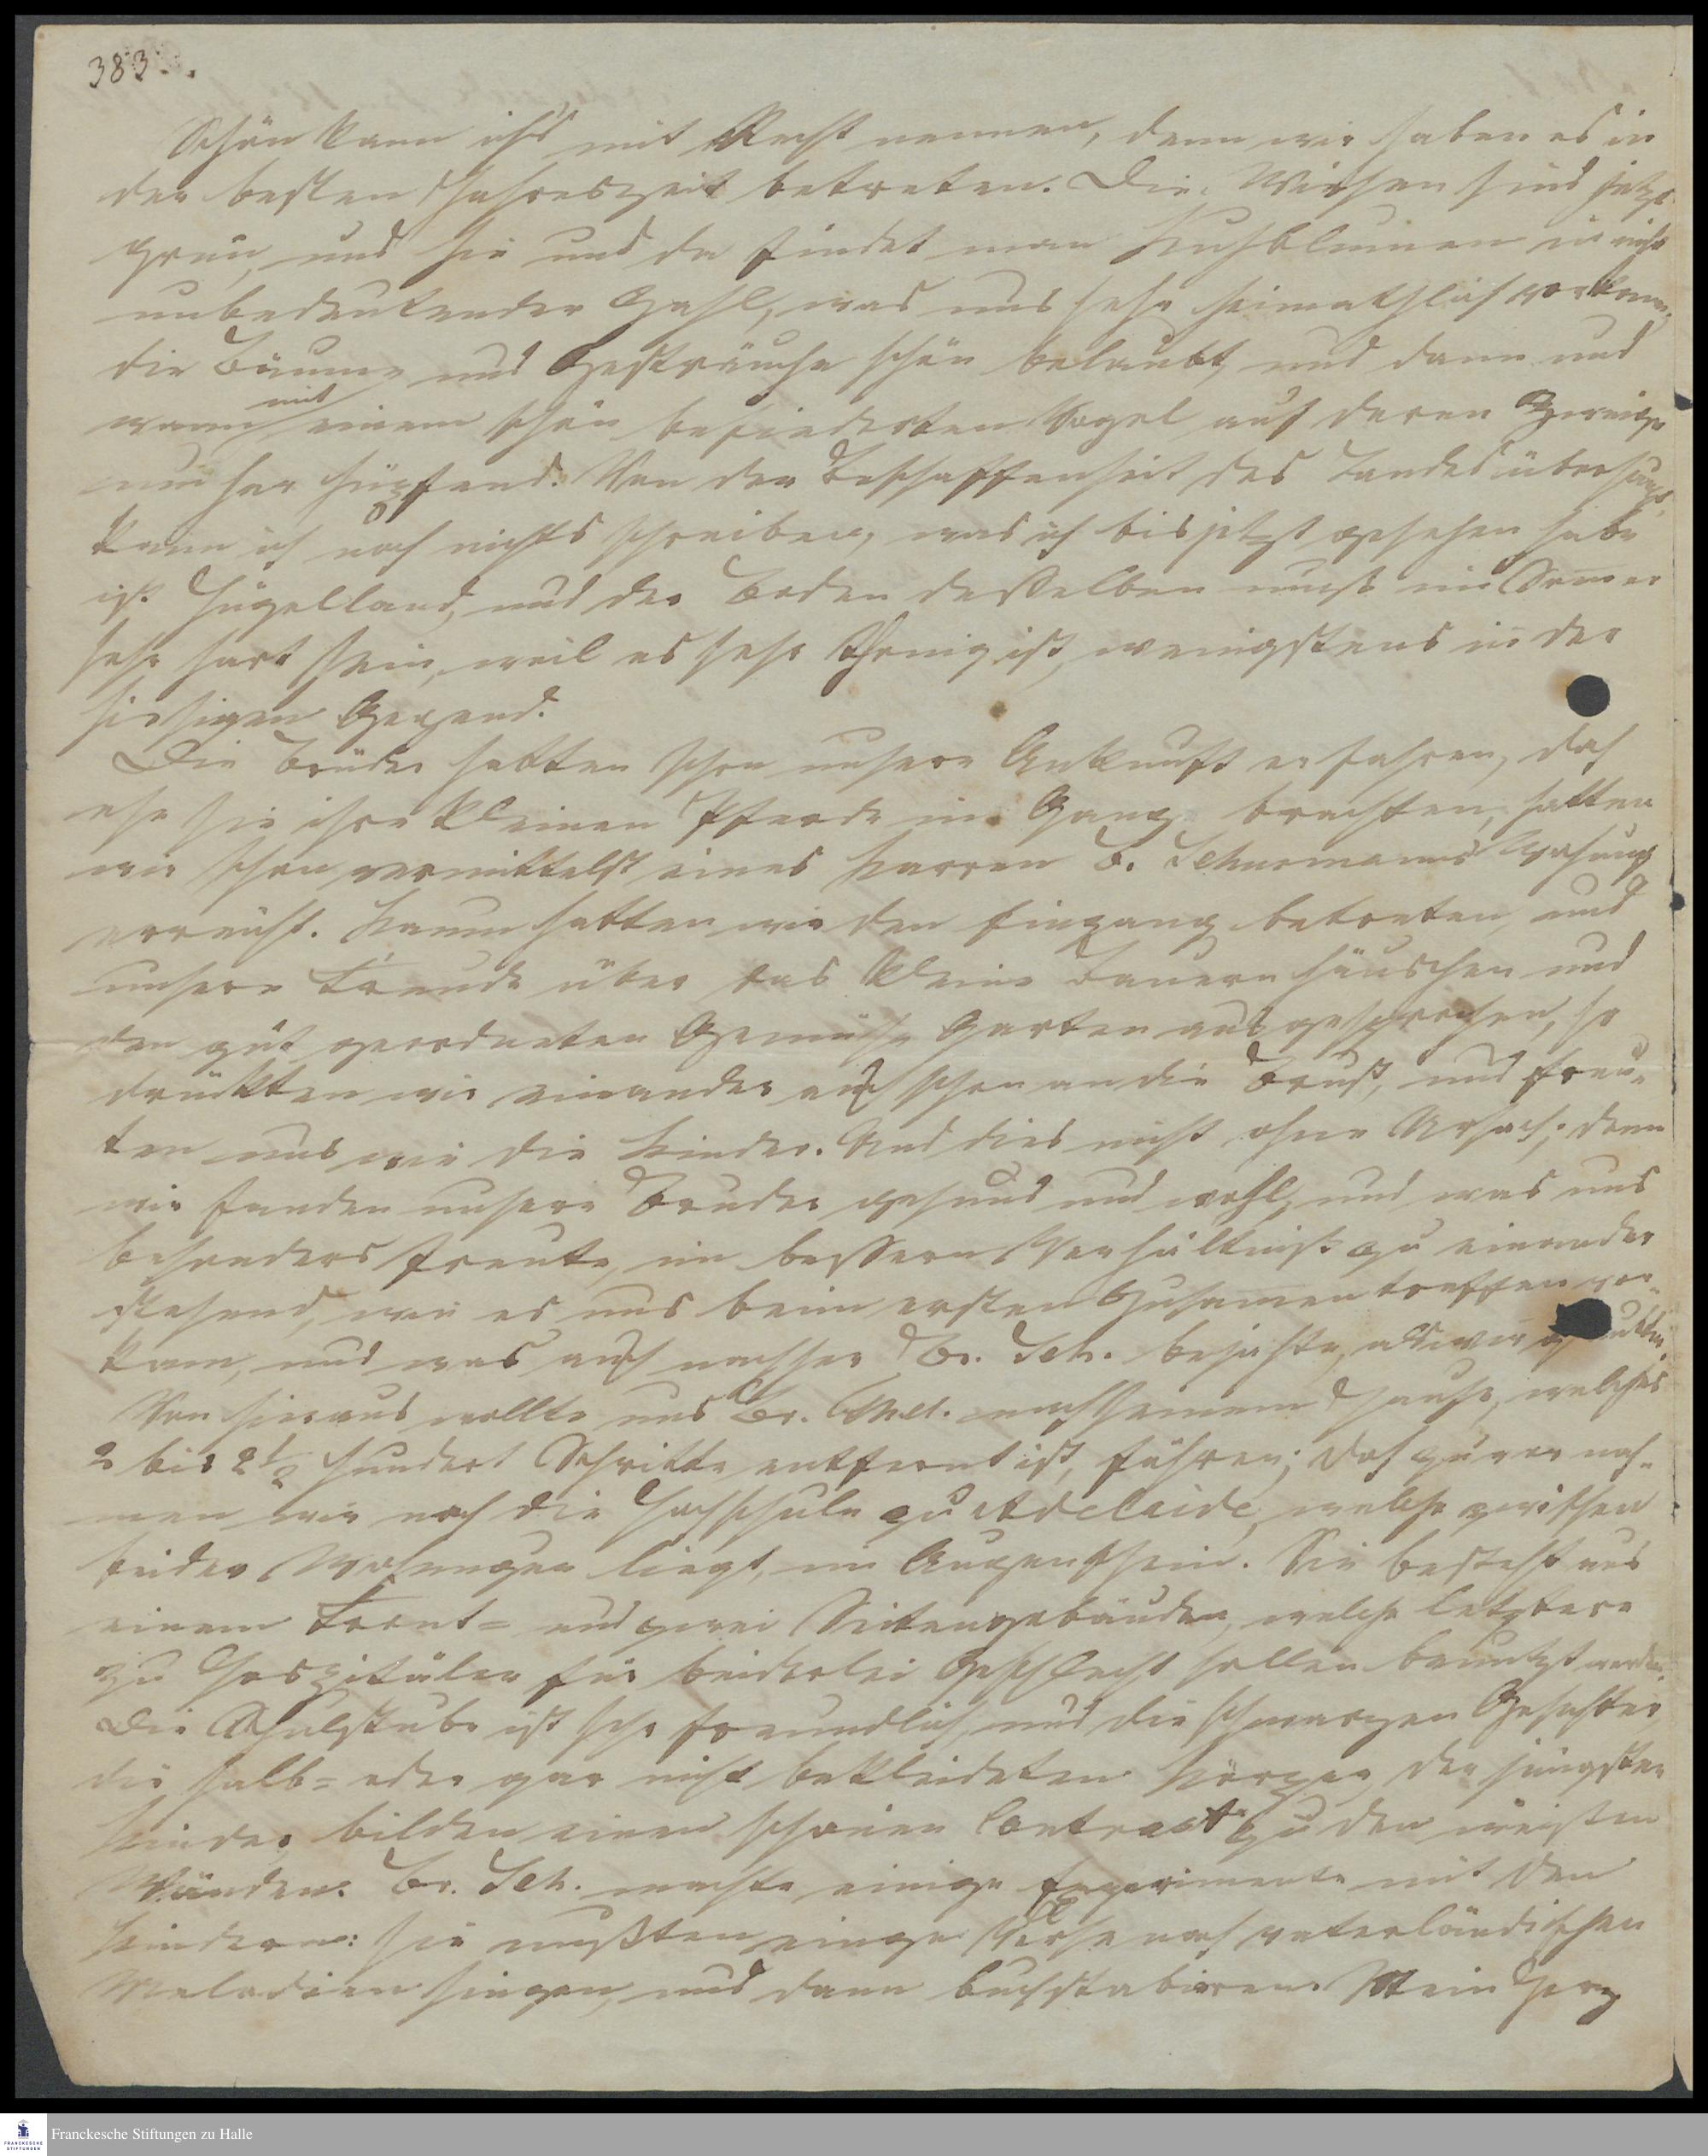 383.
Schön kann ich's mit Recht nennen, denn wir haben es in
der besten Jahreszeit betreten. Die Wiesen sind jetzt
grün, und hie und da findet man Kuhblumen in nicht
unbedeutender Zahl, was uns sehr heimathlich vorkam,
die Bäume und Gesträuche schön belaubt, und dann und
wann mit einem schön befiederten Vogel auf deren Zweige
umher hüpfend. Von der Beschaffenheit des Landes überhaupt
kann ich noch nichts schreiben, was ich bis jetzt gesehen habe
ist Hügelland, und der Boden desselben muß im Somer
sehr hart sein, weil es sehr thonig ist, wenigstens in der
hiesigen Gegend.
Die Brüder hatten schon unsere Ankunft erfahren, doch
ehe sie ihre kleinen Pferde in Gang brachten, hatten
wir schon vermittelst eines Karren B. Schurmanns Wohnung
erreicht. Kaum hatten wir den Eingang betreten, und
unsere Freude über das kleine Bauernhäuschen und
den gut geordneten Gemüse Garten ausgesprochen, so
drückten wir einander auch schon an die Brust, und freu-
ten uns wie die Kinder. Und dies nicht ohne Ursach; denn
wir fanden unsere Brüder gesund und wohl, und was uns
besonders freute, im bessern Verhältniß zu einander
stehend, wie es uns beim ersten Zusammentreffen vor-
kam, und was auch nachher Br. Sch. bejahte, als wir
Von hieraus wollte uns Br. nach seinem Hause, welches
2 bis 2½ hundert Schritte entfernt ist, führen; doch zuvor nah-
men wir noch die Hochschule zu Adelaide, welche zwischen
beider Wohnungen liegt, in Augenschein. Sie besteht aus
einem Front- und zwei Seitengebäuden, welche letztere
zu Hospitäler für beiderlei Geschlecht sollen benutzt werden.
Die Schulstube ist sehr freundlich, und die schwarzen Gesichter,
die halb- oder gar nicht bekleideten Körper der jüngsten
Kinder bilden einen schönen Contrast zu den weißen
Wänden. Br. Sch. machte einige Experimente mit den
Kindern: sie mußten einige Verse nach vaterländischen
Melodien singen, und dann buchstabieren. Mein Herz
Franckesche Stiftungen zu Halle
FRANCKESCHE
STIFTUNGEN